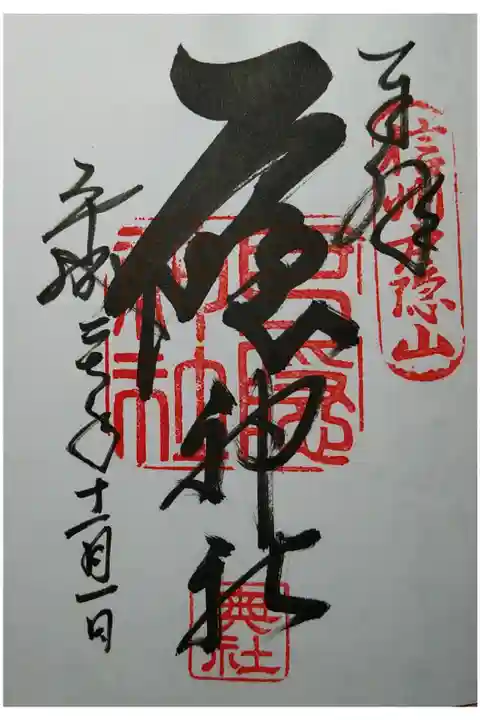 奉拝
信州戸隠山
戸隠神社
戸隠神社
奥社
平成 年十一月一日